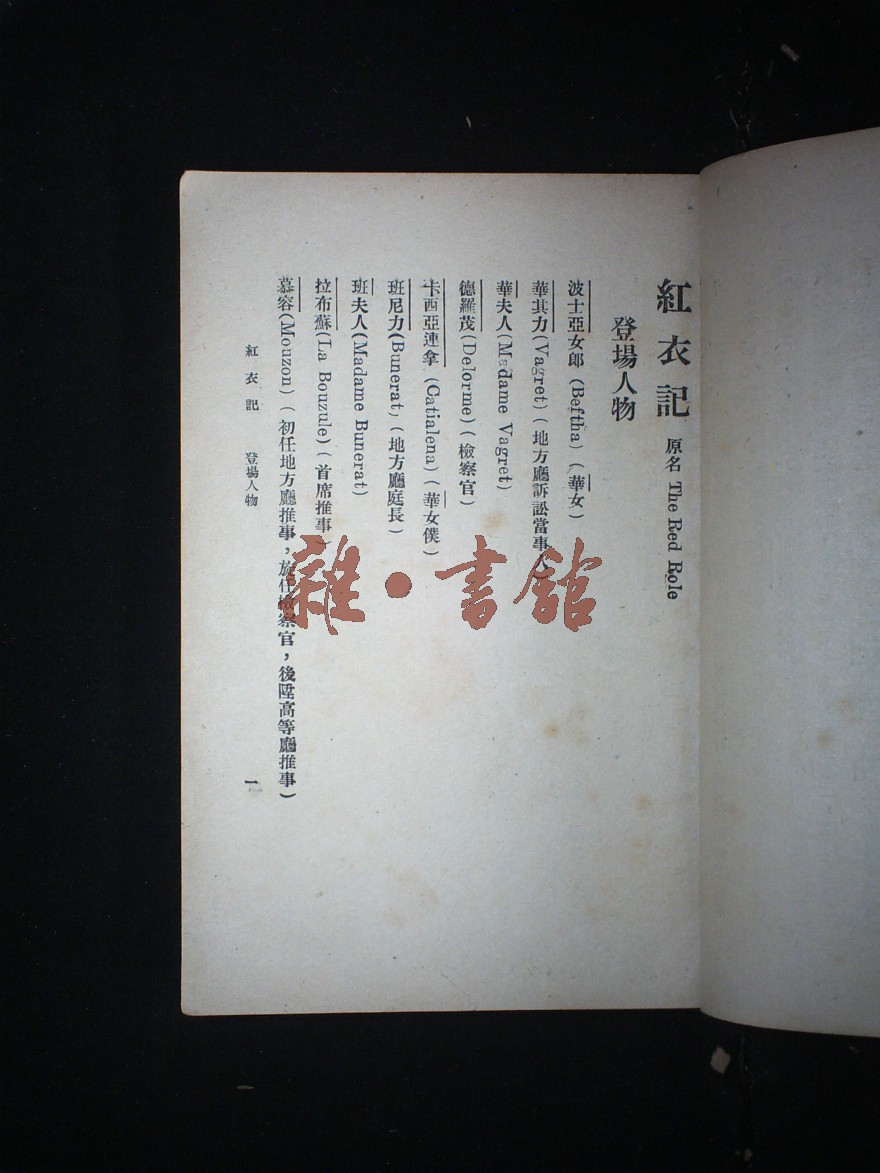 紅衣記 原名 The Red Role
登場人物
波士亞女郎 (Beftha) (華女)
華其力 (Vagret) (地方廳訴訟當事人)
華夫人 (Madame Vagret)
德羅茂 (Delorme) (檢察官)
卡西亞連拿 (Catialena) (華女僕)
班尼力 (Bunerat) (地方廳庭長)
班夫人 (Madame Bunerat)
拉布蘇 (La Bouzule) (首席推事)
慕容 (Mouzon) (初任地方廳推事，旋任檢察官，後陞高等廳推事)
紅衣記 登場人物 一
雜·書館